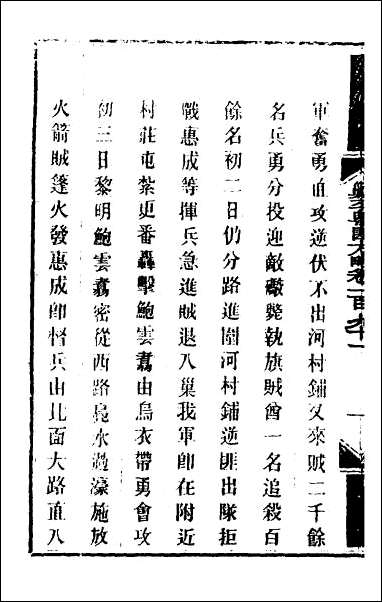 軍奮勇直攻逆伏不出河村鋪又來賊二千餘
名兵勇分投迎敵斃執旗賊酋一名追殺百
餘名初二日仍分路進圍河村鋪逆匪出隊拒
戰惠成等揮兵急進賊退入巢我軍即在附近
村莊屯紮更番轟擊鮑雲翥由烏衣帶勇會攻
初三日黎明鮑雲翥密從西路鳧水過濠施放
火箭賊篷火發惠成即督兵由北面大路直入